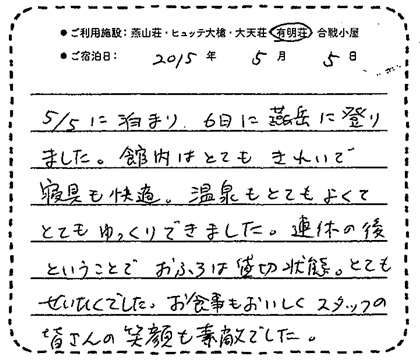 ● ご利用施設: 燕山荘・ヒュッテ大槍・大天荘・有明荘・合戦小屋
● ご宿泊日: 2015 年 5 月 5 日
5/5に泊まり、6日に燕岳に登り
ました。館内はとてもきれいで
寝具も快適。温泉もとてもよくて
とてもゆっくりできました。連休の後
ということで おふろは貸切状態。とても
ぜいたくでした。お食事もおいしくスタッフの
皆さんの笑顔も素敵でした。